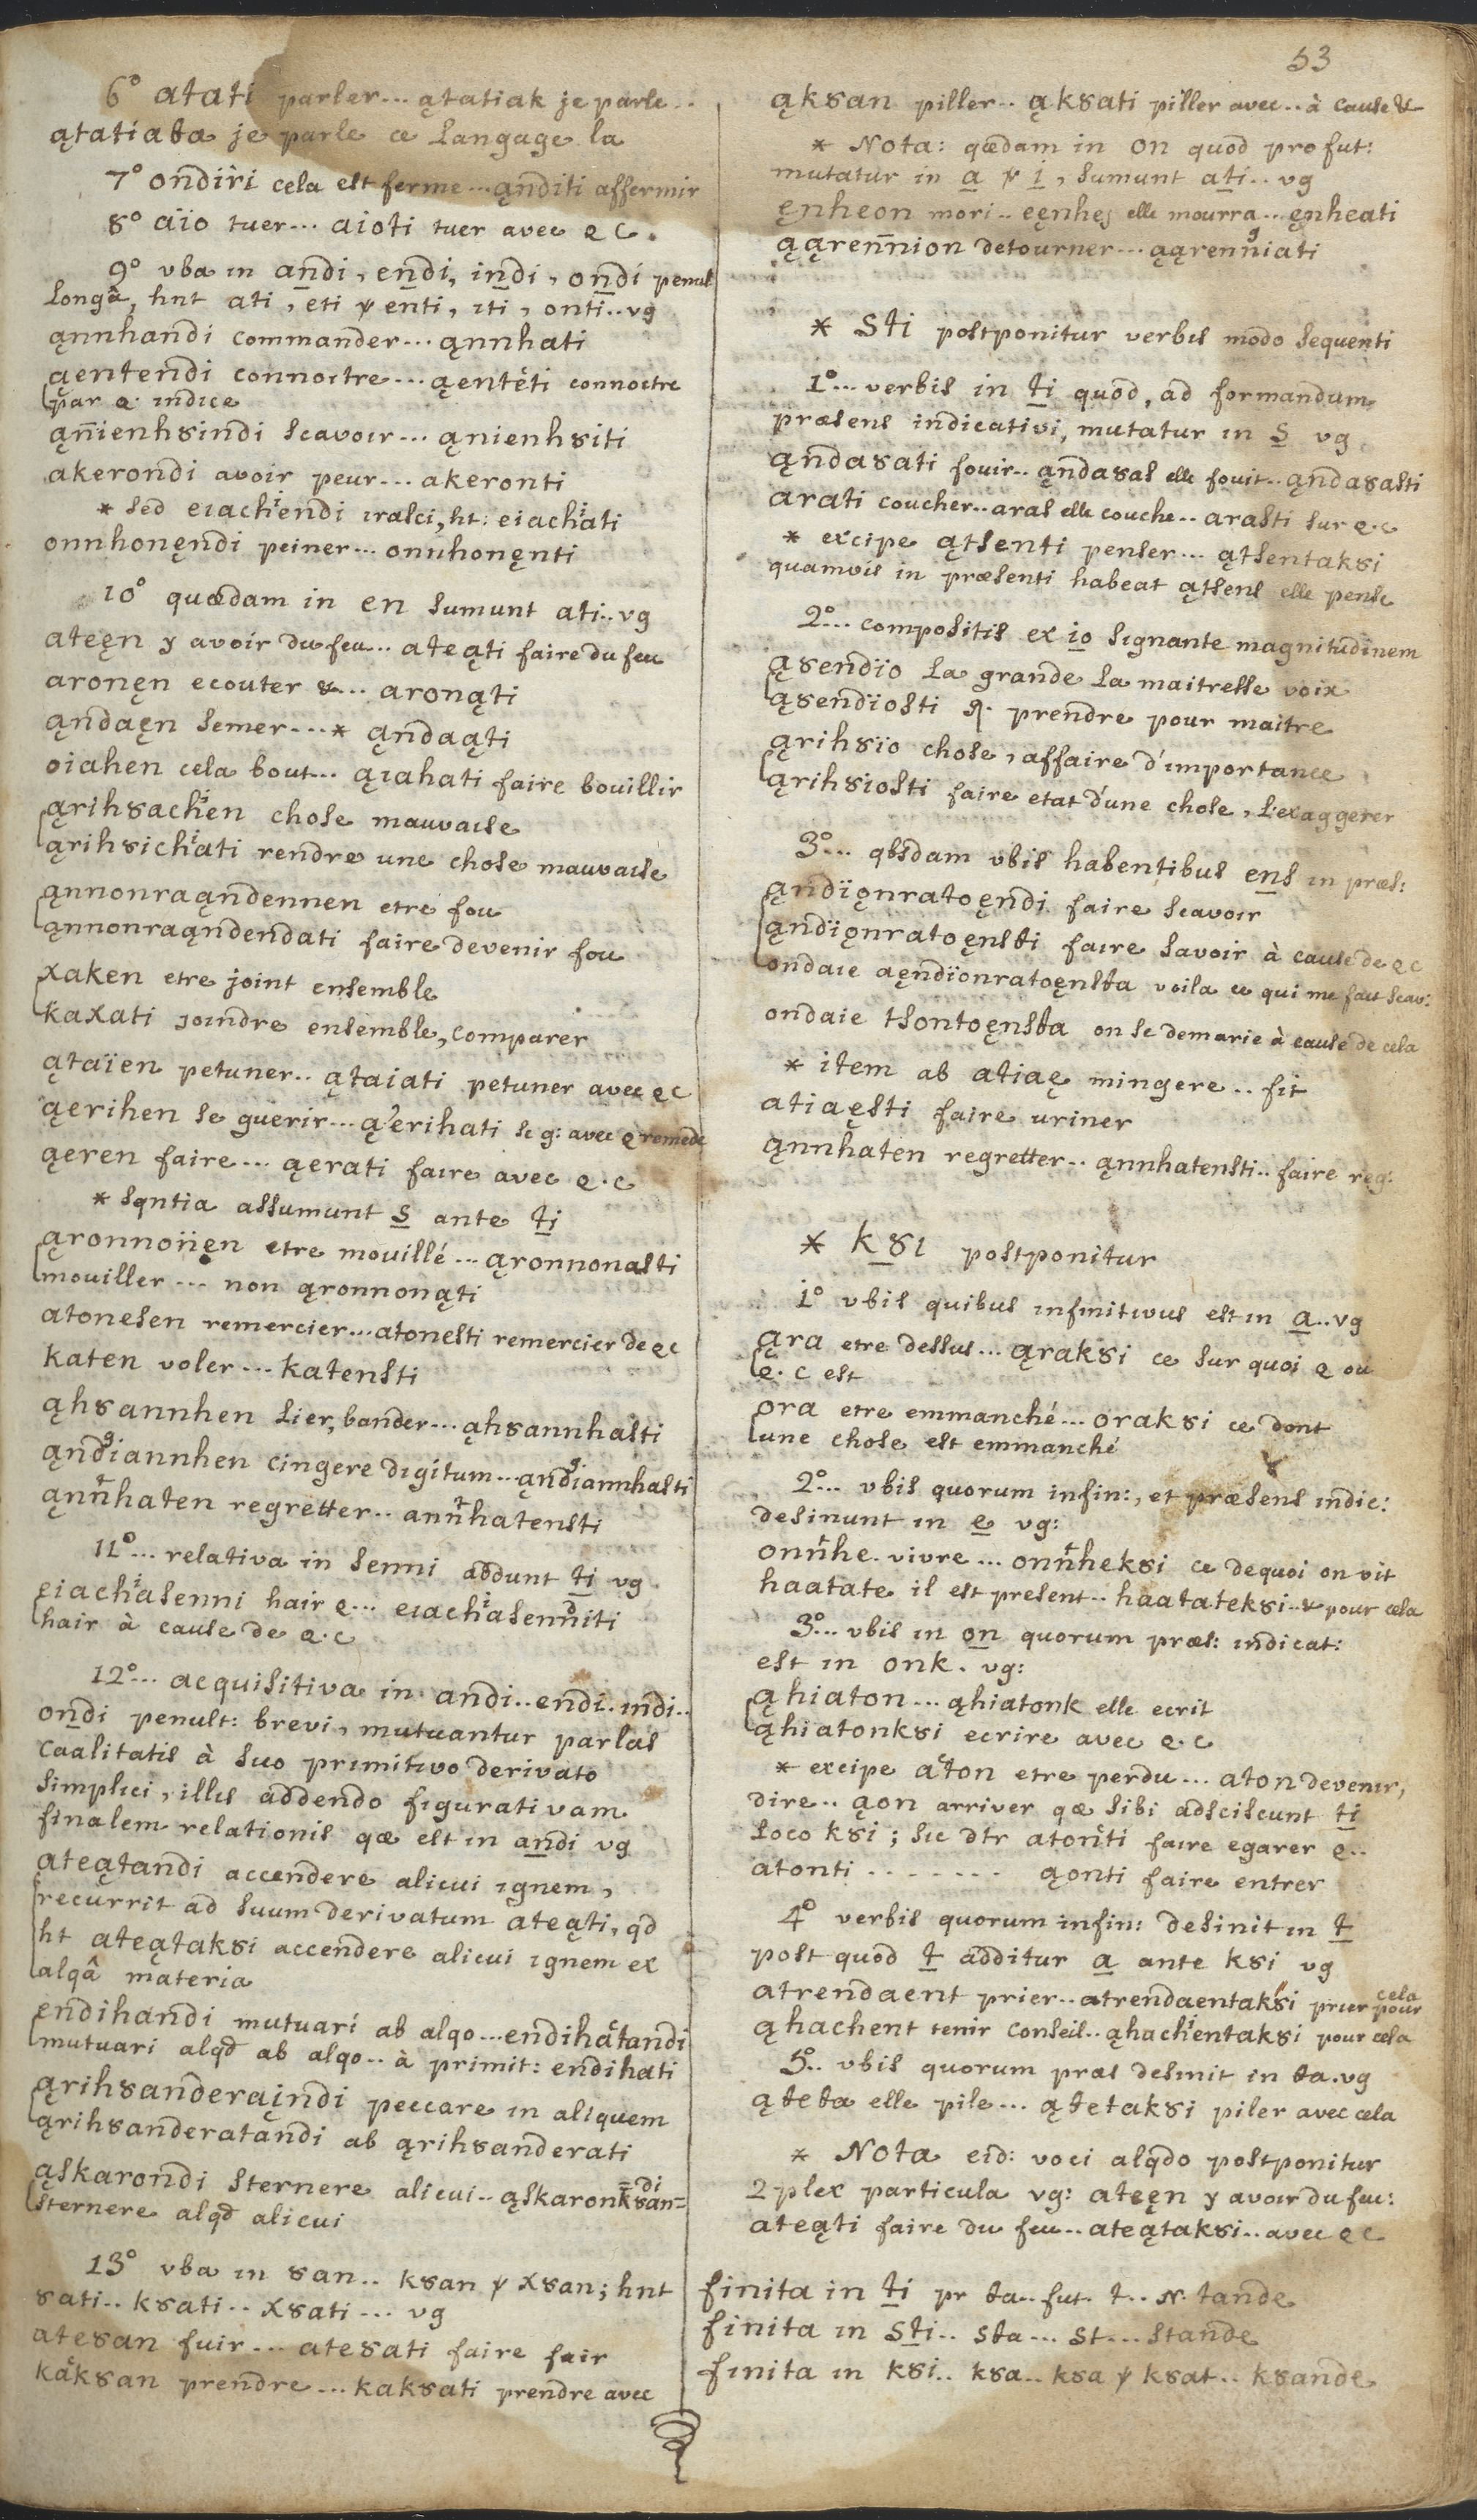 53
6° atati parler... ątatiak je parle..
ątatiata je parle ce Langage la
7° ondiri cela est ferme... ąnditi affermir
8° aïo tuer... aioti tuer avec q c.
9° vba in andi, endi, indi, ondi penul
Longâ, hnt ati, eti ψ enti, iti, onti.. vg
ąnnhandi commander... ąnnhati
ąentendi connoitre... ąenteti connoitre
par q. indice
ąnienhȣindi scavoir... ąnienhȣiti
akerondi avoir peur... akeronti
* sed eiachiendi irasci, ht: eiachiati
onnhonęndi peiner... onnhonęnti
10° quædam in en sumunt ati.. vg
ateęn y avoir du feu... ateąti faire du feu
aronęn ecouter &... aronąti
ąndaęn semer...* ąndaąti
oiahen cela bout... ąiahati faire bouillir
ąrihȣachien chose mauvaise
ąrihȣichiati rendre une chose mauvaise
ąnnonraąndennen etre fou
ąnnonraąndendati faire devenir fou
xaken etre joint ensemble
kaxati joindre ensemble, comparer
ątaïen petuner.. ątaiati petuner avec q c
ąerihen se guerir... ąerihati se g: avec q remede
ąeren faire... ąerati faire avec q. c
* sqntia assumunt s ante ti
ąronnoiięn etre mouillé... ąronnonasti
mouiller... non ąronnonąti
atonesen remercier... atonesti remercier de q c
katen voler... katensti
ąhȣannhen Lier, bander... ąhȣannhasti
ąndiannhen cingere digitum... ąndiannhasti
ąnnhaten regretter.. annhatensti
11°... relativa in senni addunt ti vg
eiachiasenni hair q... eiachiasenniti
hair à cause de q. c
12°... acquisitiva in andi.. endi. indi..
ondi penult: brevi, mutuantur parlas
caalitatis à suo primitivo derivato
simplici, illis addendo figurativam
finalem relationis qæ est in andi vg
ateątandi accendere alicui ignem,
recurrit ad suum derivatum ateąti, qd
ht ateątakȣi accendere alicui ignem ex
alqâ materia
endihandi mutuari ab alqo... endihatandi
mutuari alqd ab alqo.. à primit: endihati
ąrihȣanderaįndi peccare in aliquem
ąrihȣanderatandi ab ąrihȣanderati
ąskarondi sternere alicui.. ąskaronkȣan=
=di
sternere alqd alicui
13° vba in ȣan.. kȣan ψ xȣan; hnt
ȣati.. kȣati.. xȣati... vg
ateȣan fuir... ateȣati faire fuir
kakȣan prendre... kakȣati prendre avec
ąkȣan piller.. ąkȣati piller avec.. à cause &
* Nota: qædam in on quod pro fut:
mutatur in a ψ i, sumunt ati.. vg
ęnheon mori.. eęnheȝ elle mourra... ęnheati
ąąrennion detourner... ąąrenniati
* Sti postponitur verbis modo sequenti
1°... verbis in ti quod, ad formandum
præsens indicativi, mutatur in s vg
ąndaȣati fouir.. ąndaȣas elle fouit.. ąndaȣasti
arati coucher.. aras elle couche.. arasti sur q. c
* excipe ątsenti penser... ątsentakȣi
quamvis in præsenti habeat ątsens elle pense
2°... compositis ex io signante magnitudinem
ąȣendïo La grande La maitresse voix
ąȣendïosti q. prendre pour maitre
ąrihȣïo chose, affaire d'importance
ąrihȣiosti faire etat d'une chose, L'exaggerer
3°... qbsdam vbis habentibus ens in præs:
ąndïǫnratoęndi faire scavoir
ąndïǫnratoęnsti faire savoir à cause de q c
ondaie aęndïonratoęnsta voila ce qui me fait scav:
ondaie tsontoęnsta on se demarie à cause de cela
* item ab atiaę mingere.. fit
atiaęsti faire uriner
ąnnhaten regretter.. ąnnhatensti.. faire reg:
* kȣi postponitur
1° vbis quibus infinitivus est in a.. vg
ąra etre dessus... ąrakȣi ce sur quoi q ou
q. c est
ora etre emmanché... orakȣi ce dont
une chose est emmanché
2°... vbis quorum infin:, et præsens indic:
desinunt in e vg:
onnhe. vivre... onnhekȣi ce dequoi on vit
haatate il est present.. haatatekȣi.. & pour cela
3°... vbis in on quorum præs: indicat:
est in onk. vg:
ąhiaton... ąhiatonk elle ecrit
ąhiatonkȣi ecrire avec q. c
* excipe aton etre perdu... aton devenir,
dire.. ąon arriver qæ sibi adsciscunt ti
Loco kȣi; sic dtr atonti faire egarer q..
atonti ........ ąonti faire entrer
4° verbis quorum infin: desinit in t
post quod t additur a ante kȣi vg
atrendaent prier.. atrendaentakȣi prier pour
cela
ąhachent tenir conseil.. ąhachientakȣi pour cela
5°.. vbis quorum præs desinit in ta. vg
ąteta elle pile... ątetakȣi piler avec cela
* Nota eid: voci alqdo postponitur
2plex particula vg: ateęn y avoir du feu:
ateąti faire du feu.. ateątakȣi.. avec q c
finita in ti pr ta.. fut. t.. N. tande
finita in sti.. sta... st... stande
finita in kȣi.. kȣa.. kȣa ψ kȣat.. kȣande